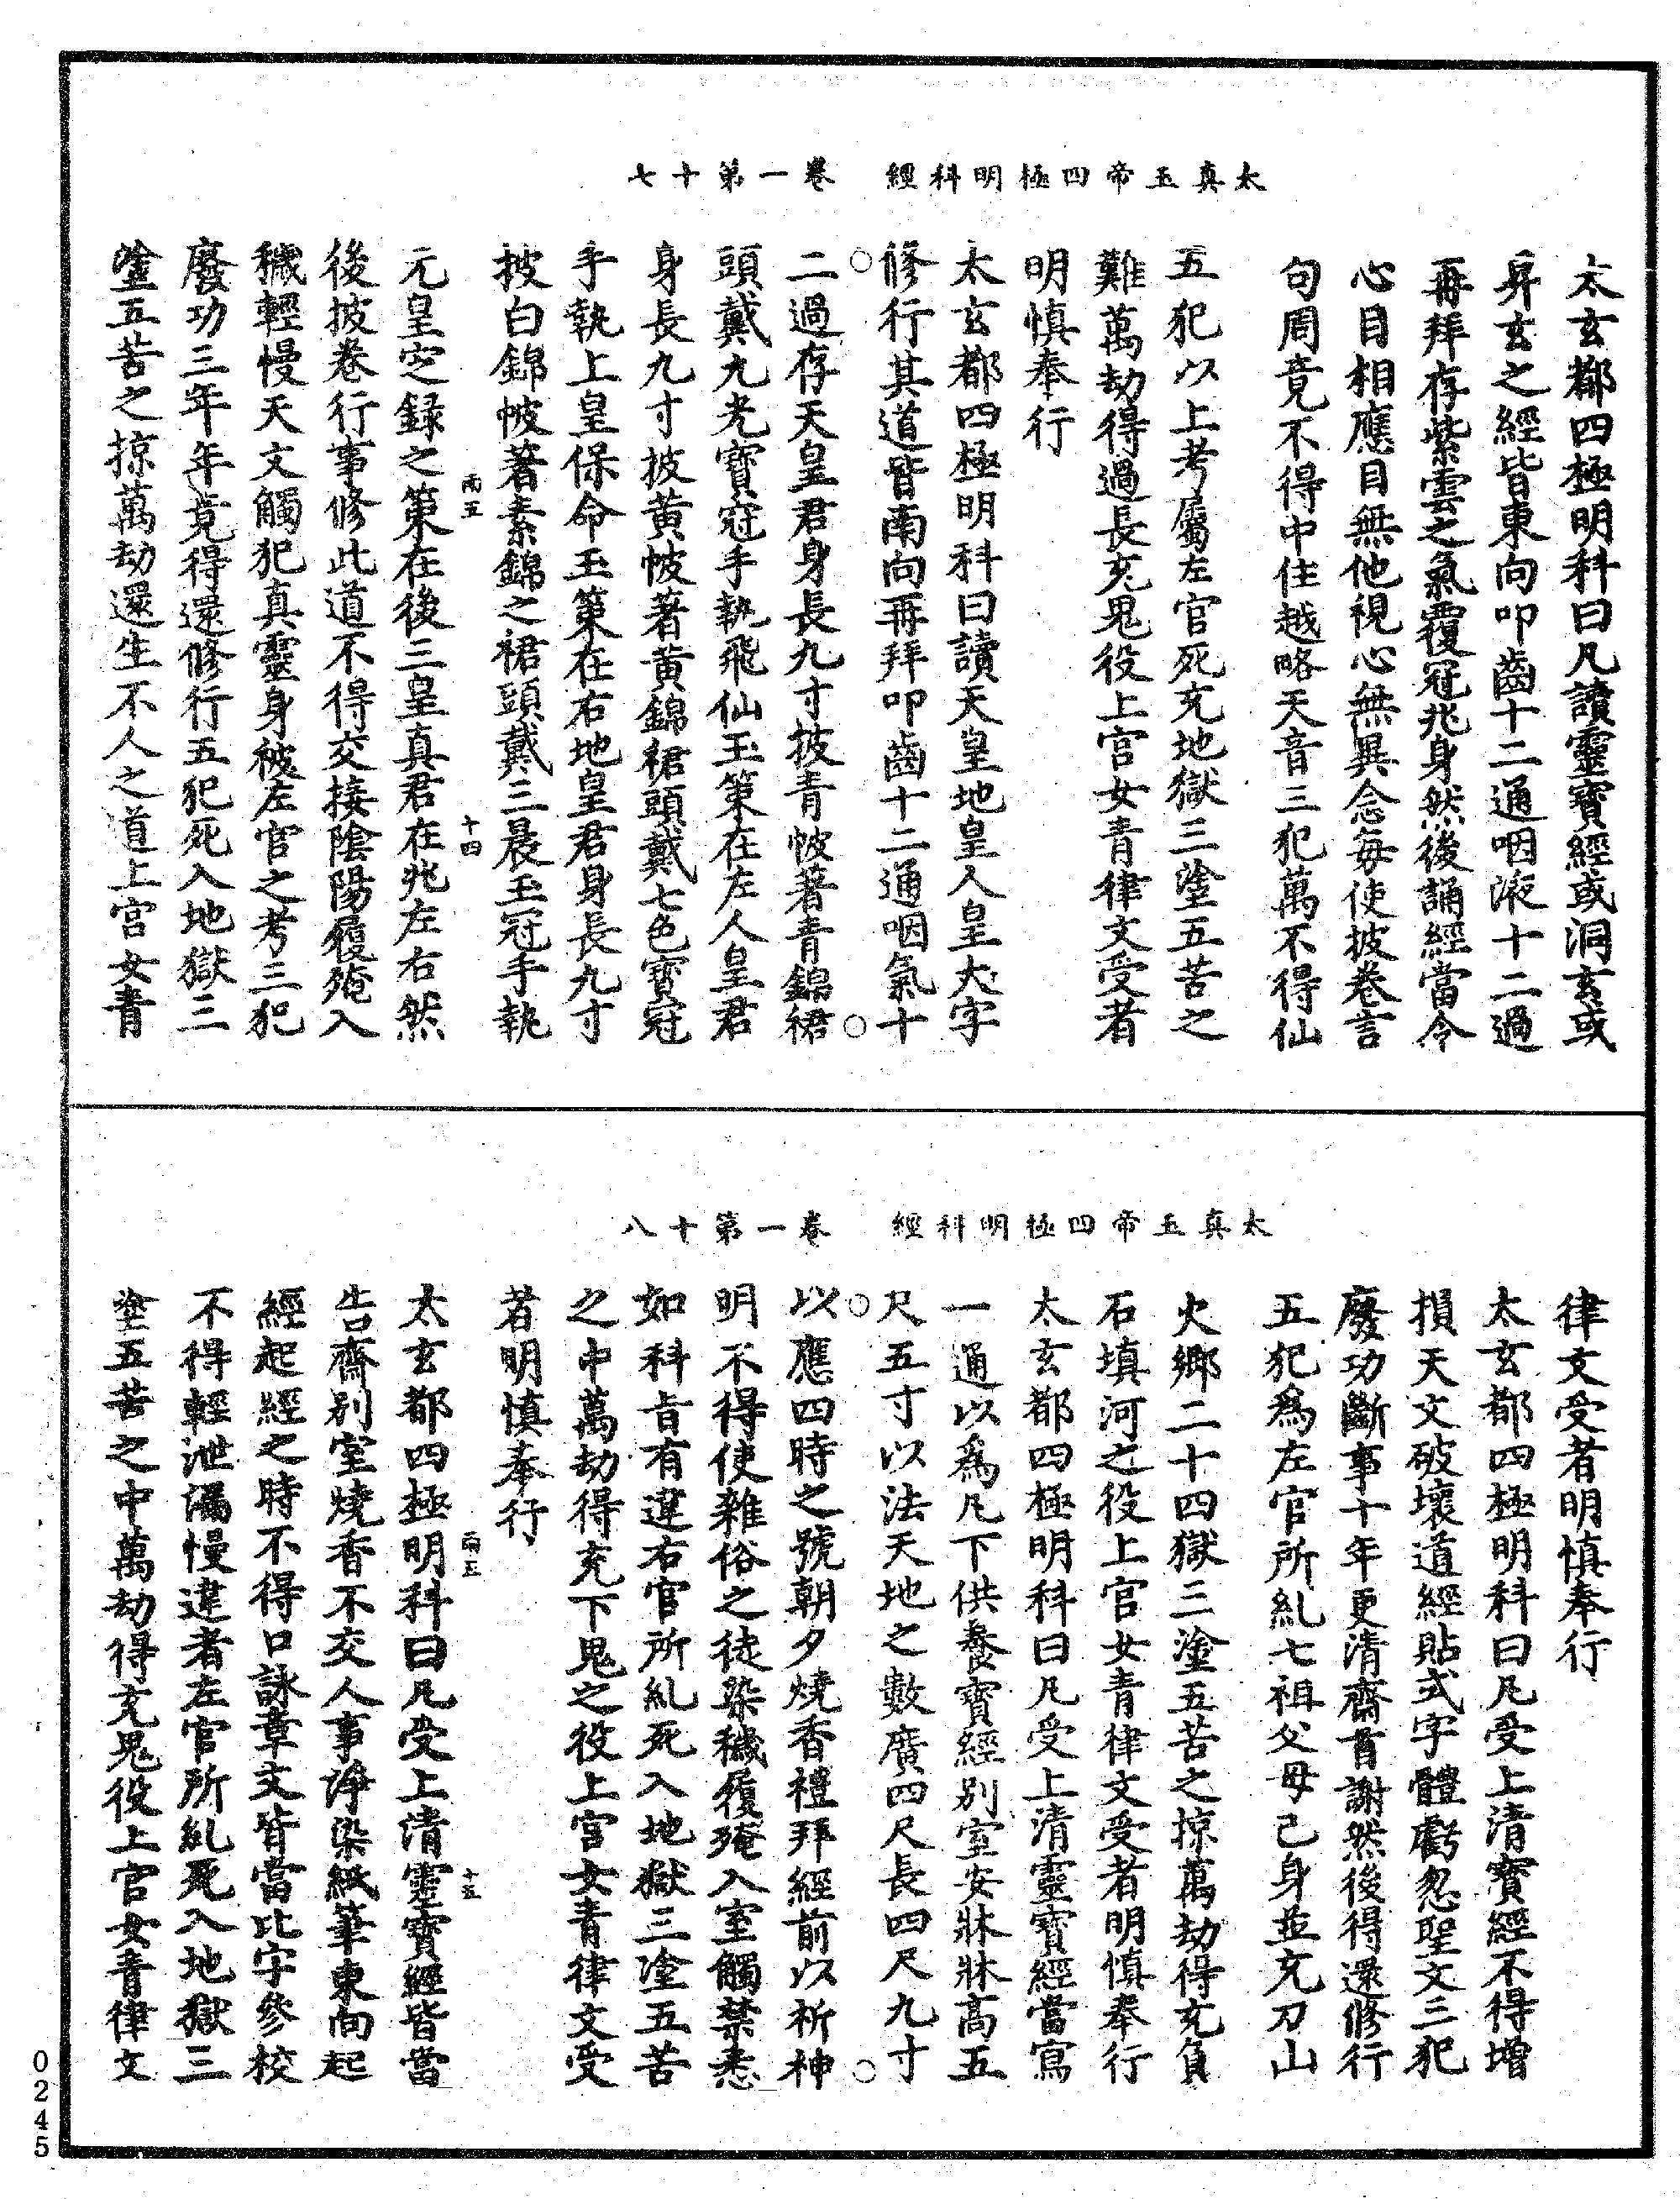 太真玉帝四極明科經　卷一第十七
太玄都四極明科曰凡讀靈寶經或洞玄或
昇玄之經皆東向叩齒十二通咽液十二過
再拜存紫雲之氣覆冠兆身然後誦經當令
心目相應目無他視心無異念每使披卷言
句周竟不得中住越略天音三犯萬不得仙
五犯以上考屬左官死充地獄三塗五苦之
難萬劫得過長充鬼役上宮女青律文受者
明慎奉行
太玄都四極明科曰讀天皇地皇人皇大字
修行其道皆南向再拜叩齒十二通咽氣十
二過存天皇君身長九寸披青帔著青錦裙
頭戴九光寶冠手執飛仙玉策在左人皇君
身長九寸披黃帔著黃錦裙頭戴七色寶冠
手執上皇保命玉策在右地皇君身長九寸
披白錦帔著素錦之裙頭戴三晨玉冠手執
雨五　十四
元皇定錄之策在後三皇真君在兆左右然
後披卷行事修此道不得交接陰陽履殗入
穢輕慢天文觸犯真靈身被左官之考三犯
廢功三年年竟得還修行五犯死入地獄三
塗五苦之掠萬劫還生不人之道上宮女青
太真玉帝四極明科經　卷一第十八
律文受者明慎奉行
太玄都四極明科曰凡受上清寶經不得增
損天文破壞道經貼式字體虧忽聖文三犯
廢功斷事十年更清齋首謝然後得還修行
五犯為左官所糺七祖父母己身並充刀山
火鄉二十四獄三塗五苦之掠萬劫得充負
石填河之役上官女青律文受者明慎奉行
太玄都四極明科曰凡受上清靈寶經當寫
一通以為凡下供養寶經別室安牀牀高五
尺五寸以法天地之數廣四尺長四尺九寸
以應四時之號朝夕燒香禮拜經前以祈神
明不得使雜俗之徒染穢履殗入室觸禁悉
如科旨有違右官所糺死入地獄三塗五苦
之中萬劫得充下鬼之役上宮女青律文受
者明慎奉行
雨五　十五
太玄都四極明科曰凡受上清靈寶經皆當
告齋別室燒香不交人事淨染紙筆東向起
經起經之時不得口詠章文皆當比字參校
不得輕泄漏慢違者左官所糺死入地獄三
塗五苦之中萬劫得充鬼役上官女青律文
0245